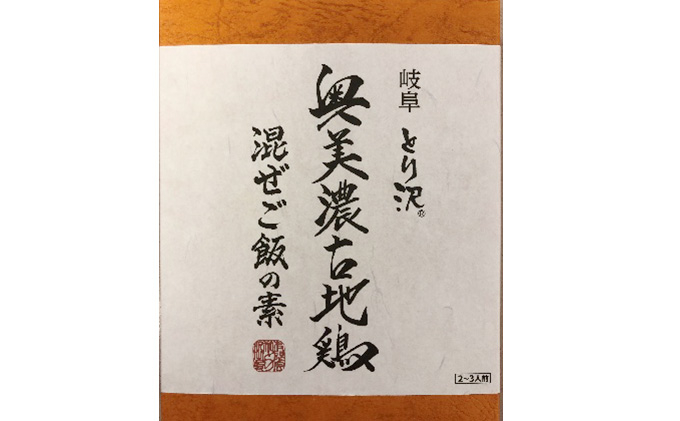 岐阜
とり沢®
奥美濃古地鶏
混ぜご飯の素
2～3人前